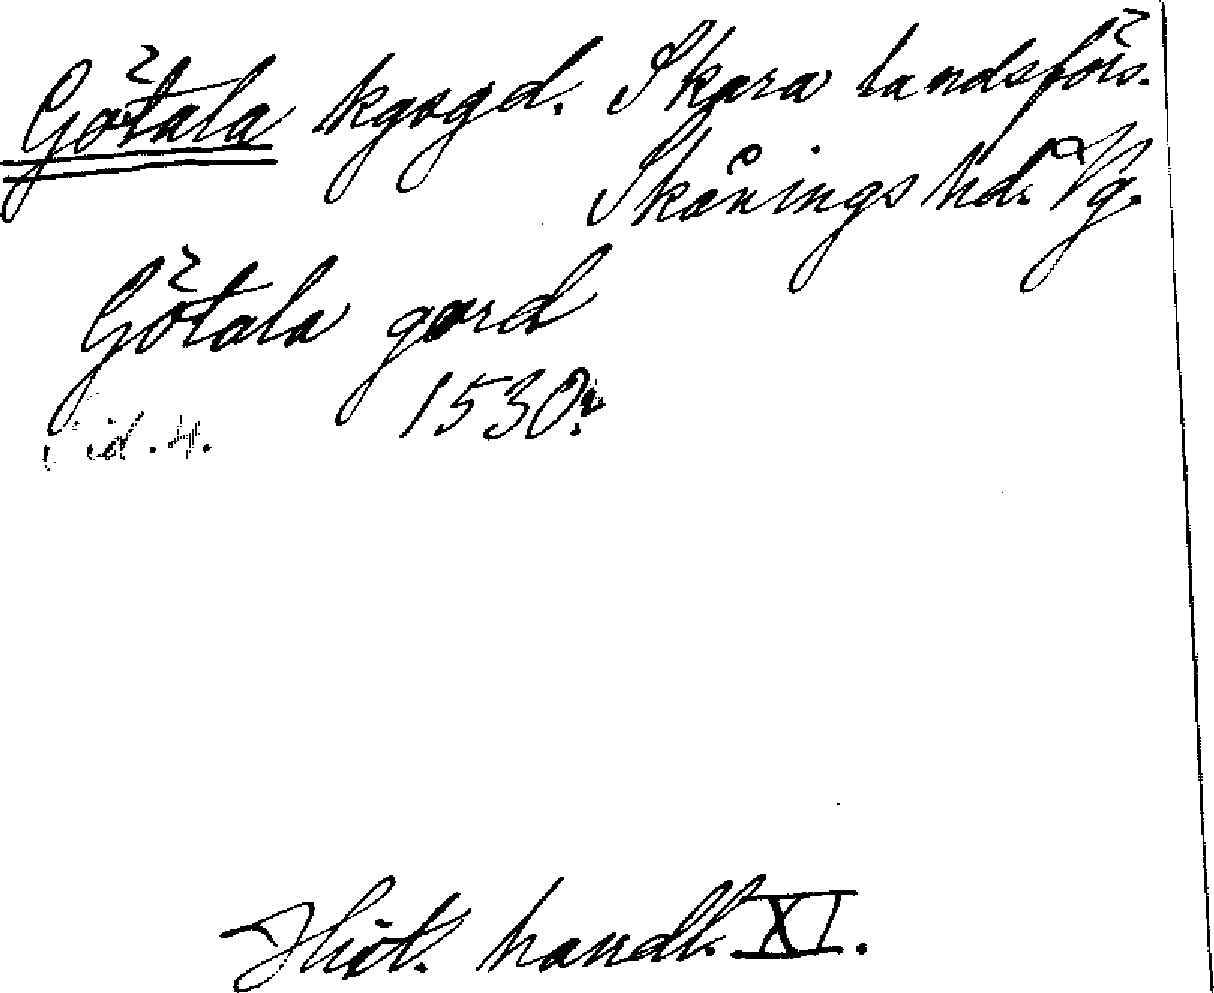 Götala kgsgd. Skara landsförs.
Skånings hd. Vg.
Götala gard
1530.
Sid. 4.
Hist. handl. XI.